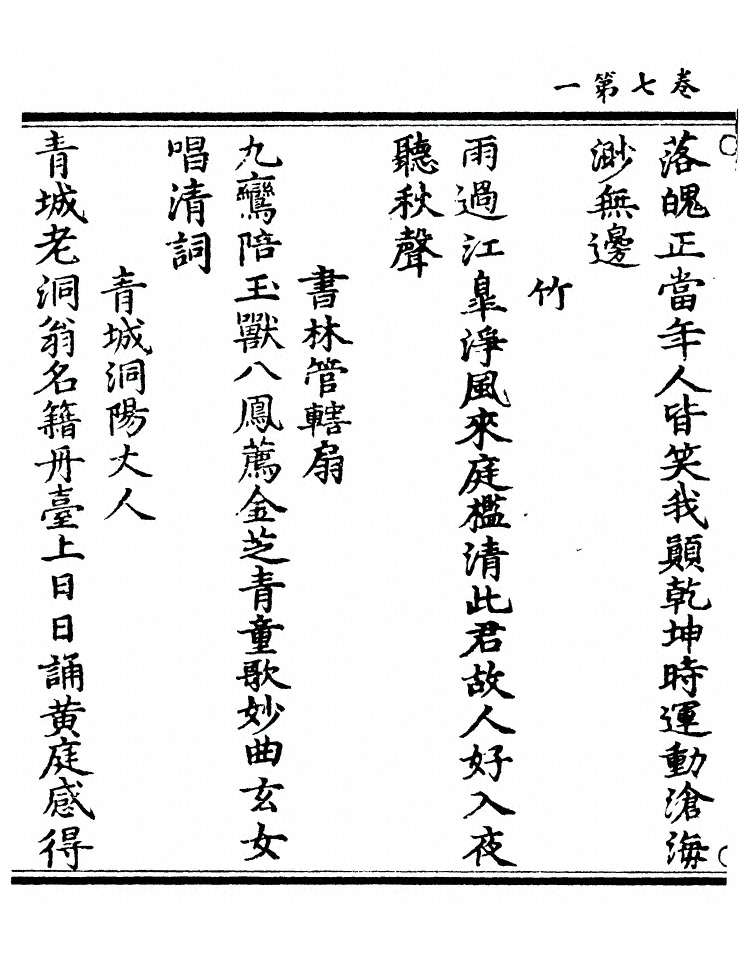 卷七第一
落魄正當年人皆笑我顛乾坤時運動滄海
渺無邊
竹
雨過江臯淨風來庭檻清此君故人好入夜
聽秋聲
書林管轄扇
九鸞陪玉獸八鳳薦金芝青童歌妙曲玄女
唱清詞
青城洞陽大人
青城老洞翁名籍丹臺上日日誦黃庭感得